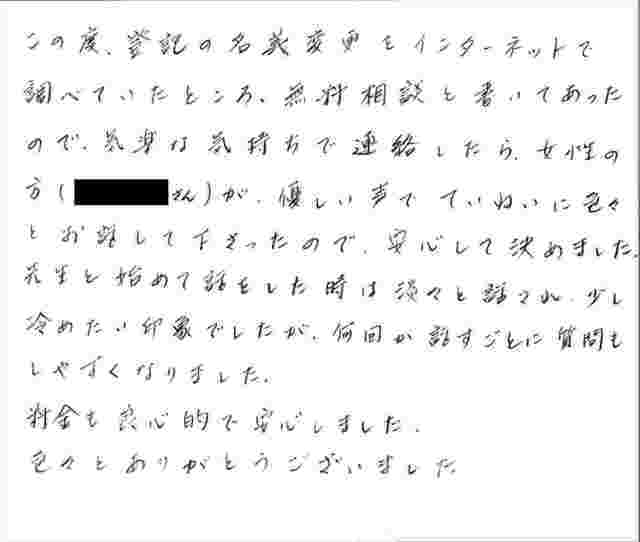 この度、登記の名義変更をインターネットで
調べていたところ、無料相談と書いてあった
ので、気楽な気持ちで連絡したら、女性の
方(さん)が、優しい声でていねいに色々
とお話して下さったので、安心して決めました。
先生と始めて話をした時は淡々と話され、少し
冷めたい印象でしたが、何回か話すごとに質問も
しやすくなりました。
料金も良心的で安心しました。
色々とありがとうございました